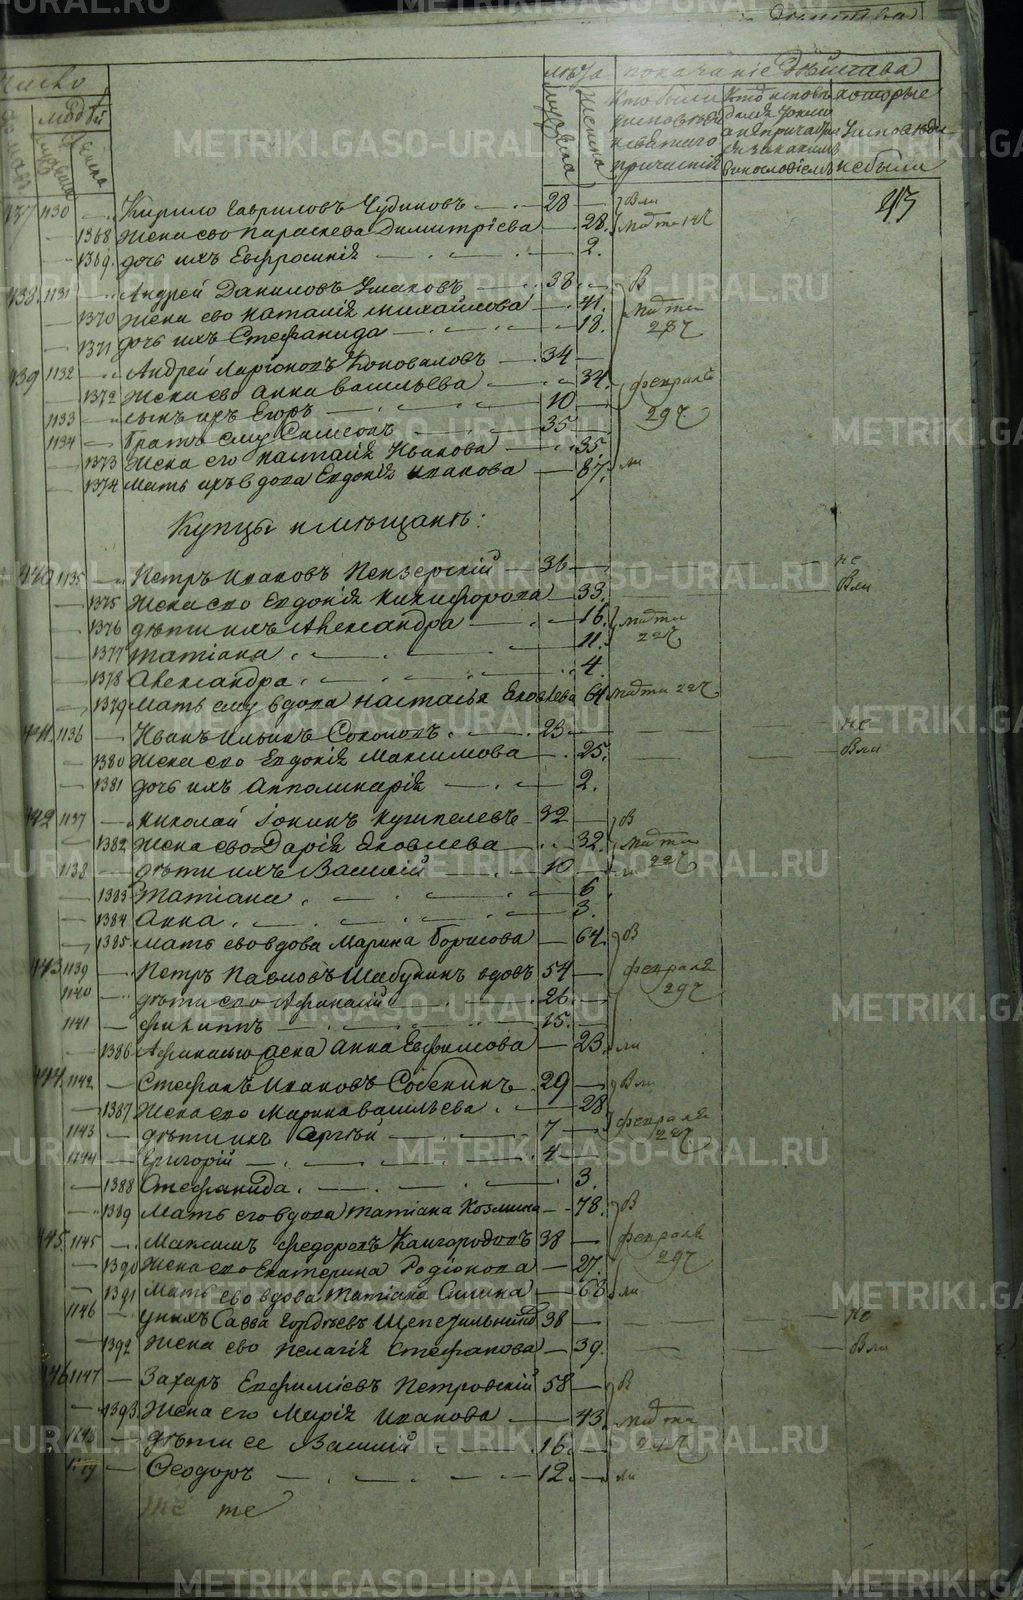 число
людей
лѣта показаніе Дѣйства
мужеска
женска
Кто были
исповѣди
и святаго
причастія
которые
Исповѣди
не были
213
437 1130 Кирило Гавриловъ Чудиновъ 28
1368 Жена ево Параскева Димитріева 28. марта
1369. дочь ихъ Евфросинія 2.
438. 1131 Андрей Даниловъ Ушаковъ 38
1370 Жена ево Наталія Михайлова 41. марта
1371 дочь ихъ Стефанида 18.
439 1132 Андрей Ларіоновъ Коноваловъ 34
1372 Жена ево Анна Васильева 34. февраля
1133 сынъ ихъ Егоръ 10 29
1134 Братъ ему Симеонъ 35
1373 Жена его Настасія Иванова 35.
1374 Мать ихъ вдова Евдокія Иванова 87. ли
Купцы и мѣщанѣ:
440 1135 Петръ Ивановъ Пензерскій 36 не
1375 Жена ево Евдокія Никифорова 33. Были
1376 дѣти ихъ Александра 16. марта
1377 Татіана 11. 22
1378 Александра 4.
1379 Мать ему вдова Настасья Яковлева 64 марта 22
441. 1136 Иванъ Ильинъ Соколовъ 23 не
1380 Жена ево Евдокія Максимова 25. Были
1381 дочь ихъ Апполинарія 2.
442 1137 Николай Іонинъ 32
1382 Жена ево Дарія Яковлева 32. марта
1138 дѣти ихъ Василій 10 22
1383 Татіана 6
1384 Анна 3.
1385. Мать ево вдова Марина Борисова 64.
443 1139 Петръ Павловъ Шабунинъ вдовъ 54 февраля
1140 дѣти ево Афанасій 26. 29
1141 Филиппъ 15.
1386 Афанасью жена Анна Евфимова 23. ли
444. 1142 Стефанъ Ивановъ Собенинъ 29 Были
1387 Жена ево Марина Васильева 28
1143 дѣти ихъ Сергѣй 7 февраля
1144 Григорій 4
1388 Стефанида 3.
1389 Мать его вдова Татіана Козмина 78.
445. 1145 Максимъ Федоровъ Кайгородовъ 38 февраля
1390 Жена ево Екатерина Родіонова 27. 29
1391 Мать ево вдова Татіана Силина 63. ли
1146 У нихъ Савва 38 не
1392 Жена ево Пелагія Стефанова 39. Были
446 1147 Захаръ Евфиміевъ Петровскій 58
1393 Жена его Марія Иванова 43. марта
1148 дѣти ее Василій 16.
1149 Ѳеодоръ 12. ли
METRIKI.GASO-URAL.RU